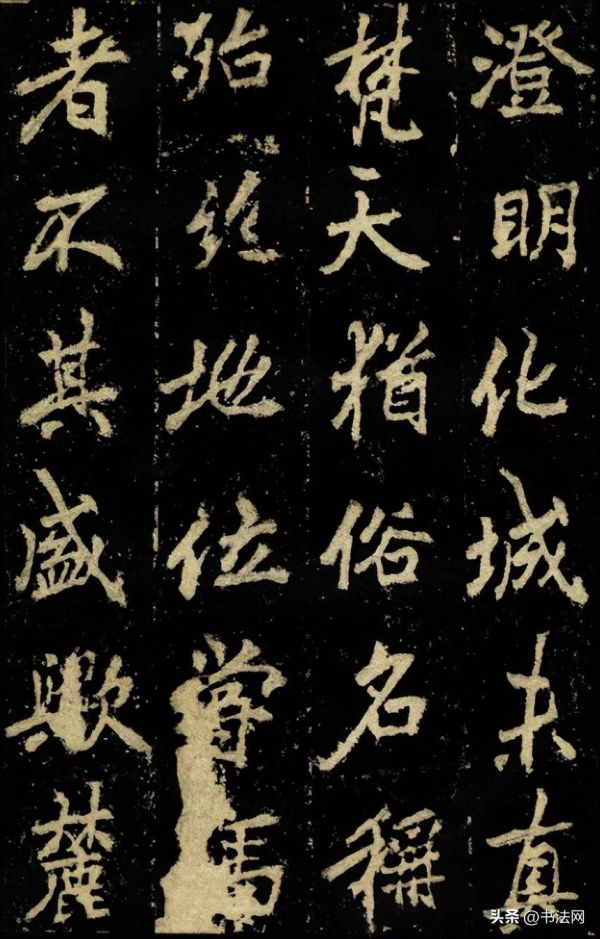 澄明化城未真
梵天猶俗名稱
殆絕地位
者不其盛歟麓
头条 @书法网